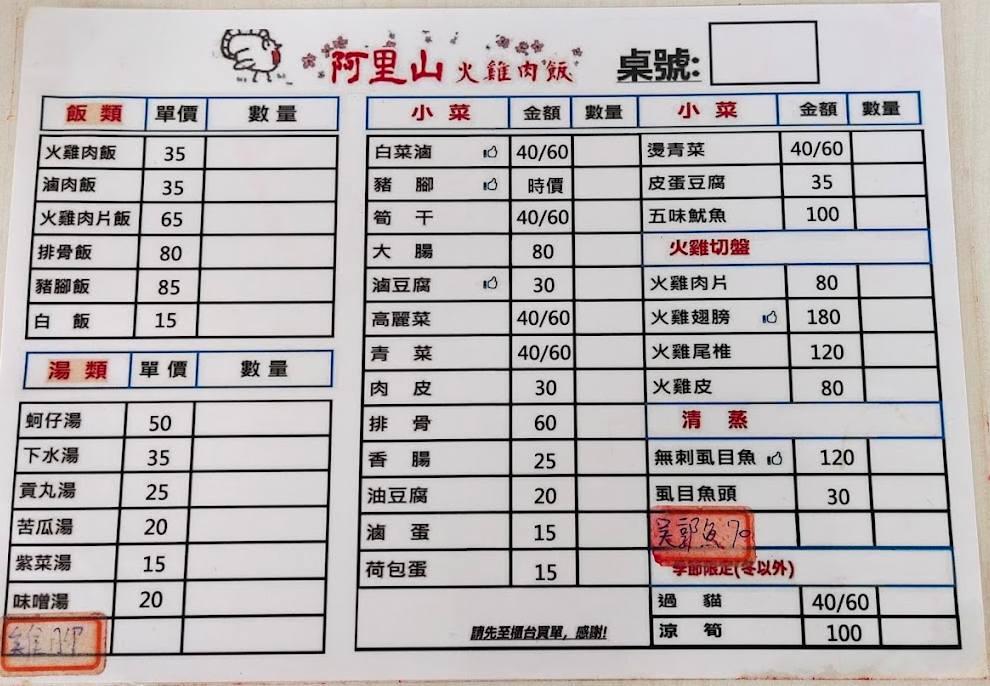 阿里山火雞肉飯 桌號:
飯類 單價 數量
火雞肉飯 35
滷肉飯 35
火雞肉片飯 65
排骨飯 80
豬腳飯 85
白飯 15
湯類 單價 數量
蚵仔湯 50
下水湯 35
貢丸湯 25
苦瓜湯 20
紫菜湯 15
味噌湯 20
雞腳
小菜 金額 數量
白菜滷 40/60
豬腳 時價
筍干 40/60
大腸 80
滷豆腐 30
高麗菜 40/60
青菜 40/60
肉皮 30
排骨 60
香腸 25
油豆腐 20
滷蛋 15
荷包蛋 15
請先至櫃台買單，感謝!
小菜 金額 數量
燙青菜 40/60
皮蛋豆腐 35
五味魷魚 100
火雞切盤
火雞肉片 80
火雞翅膀 180
火雞尾椎 120
火雞皮 80
清蒸
無刺虱目魚 120
虱目魚頭 30
吳郭魚 70
季節限定(冬以外)
過貓 40/60
涼筍 100